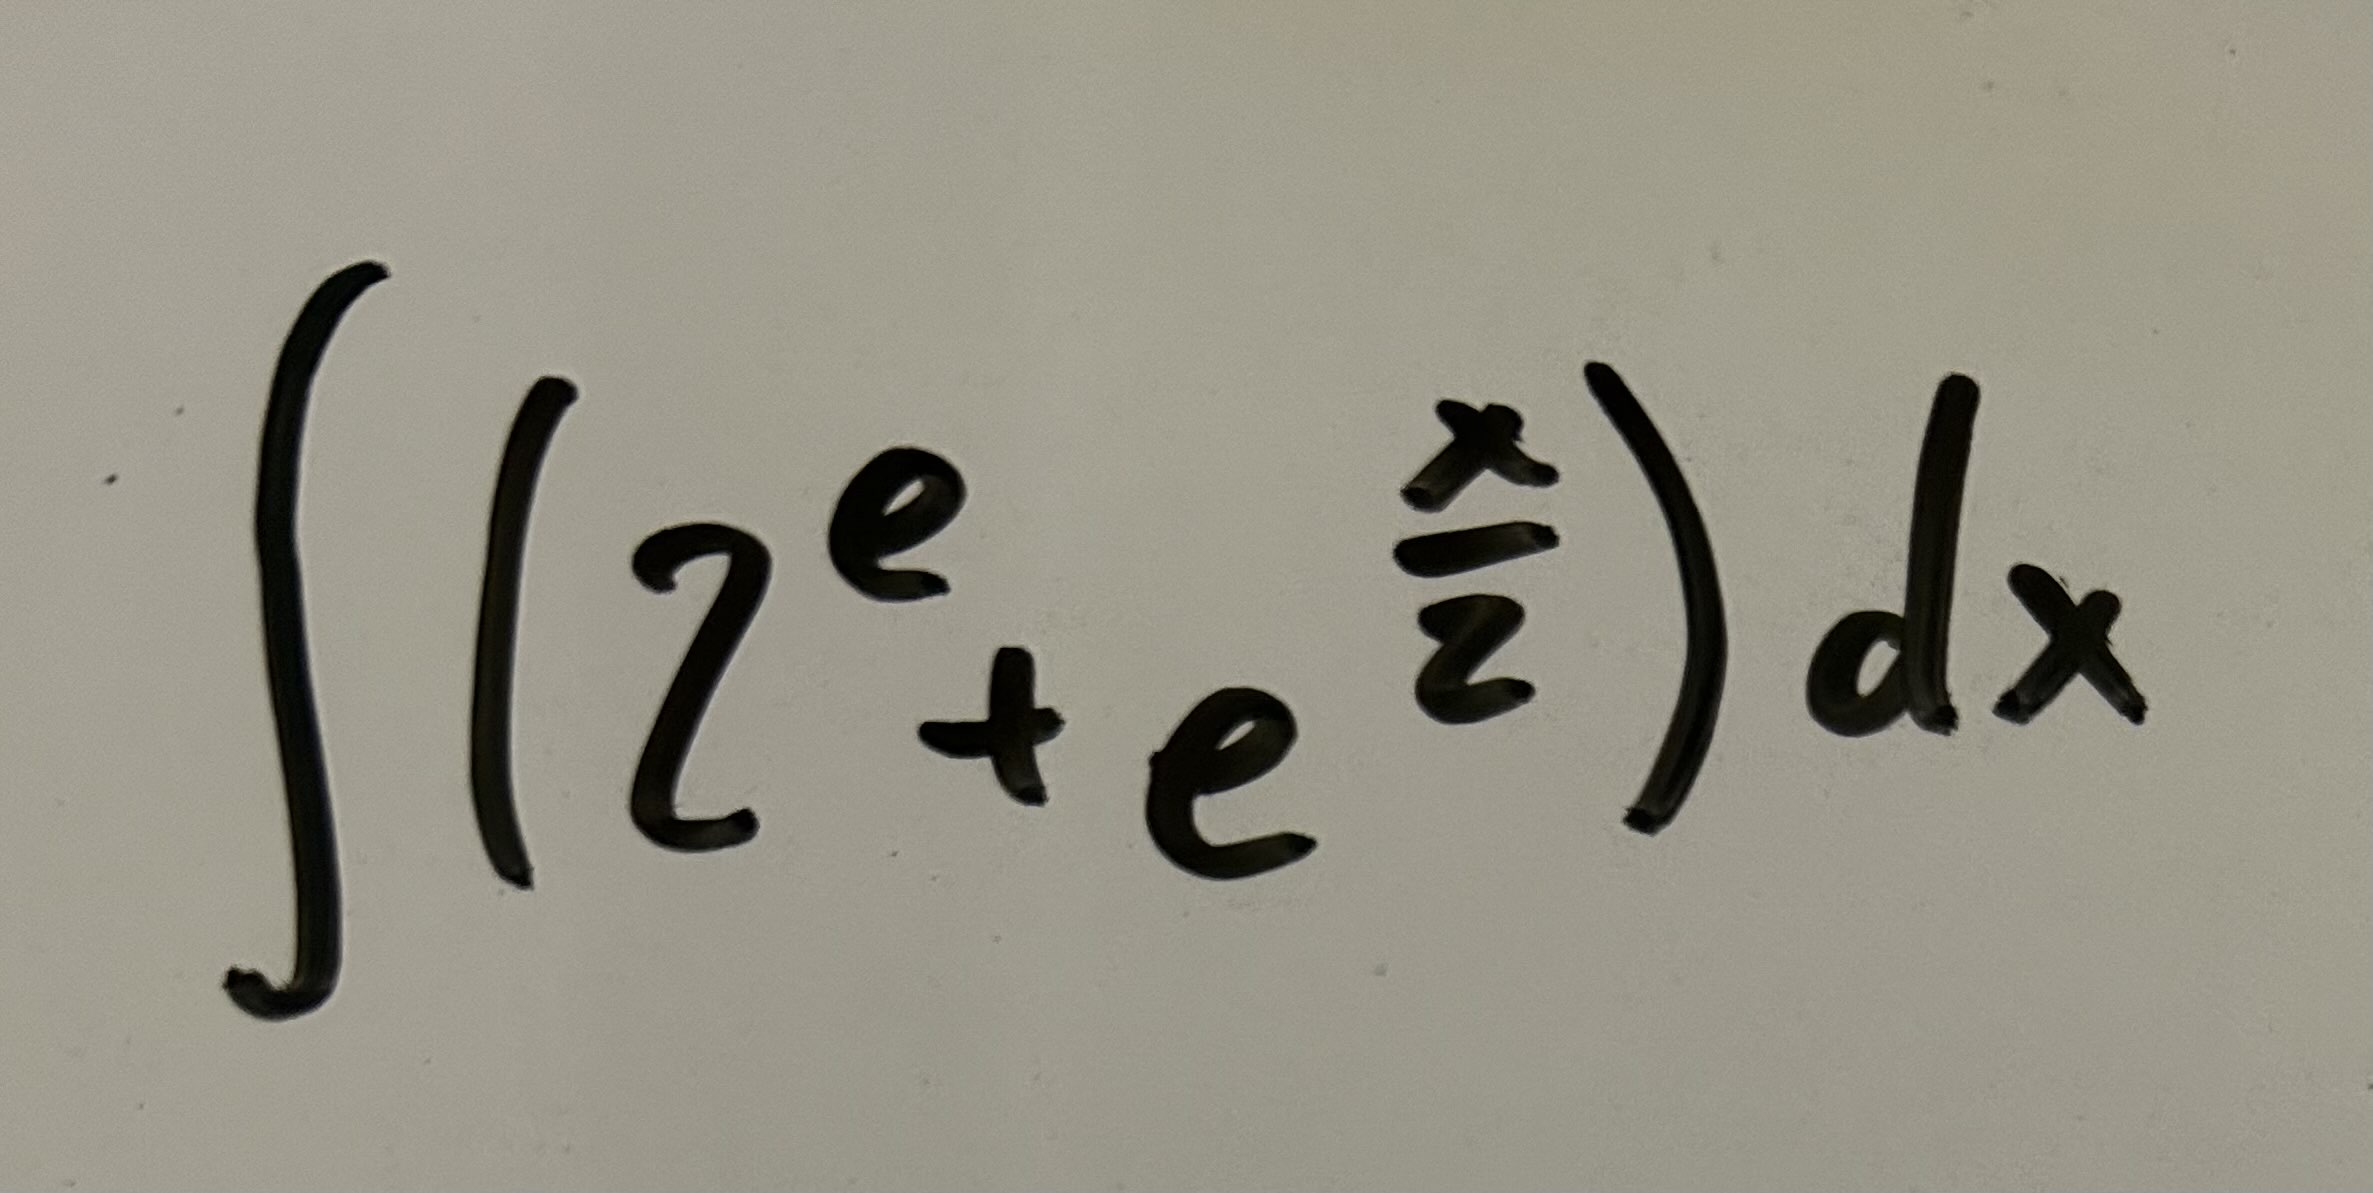 ∫(2^e + e^(x/2))dx